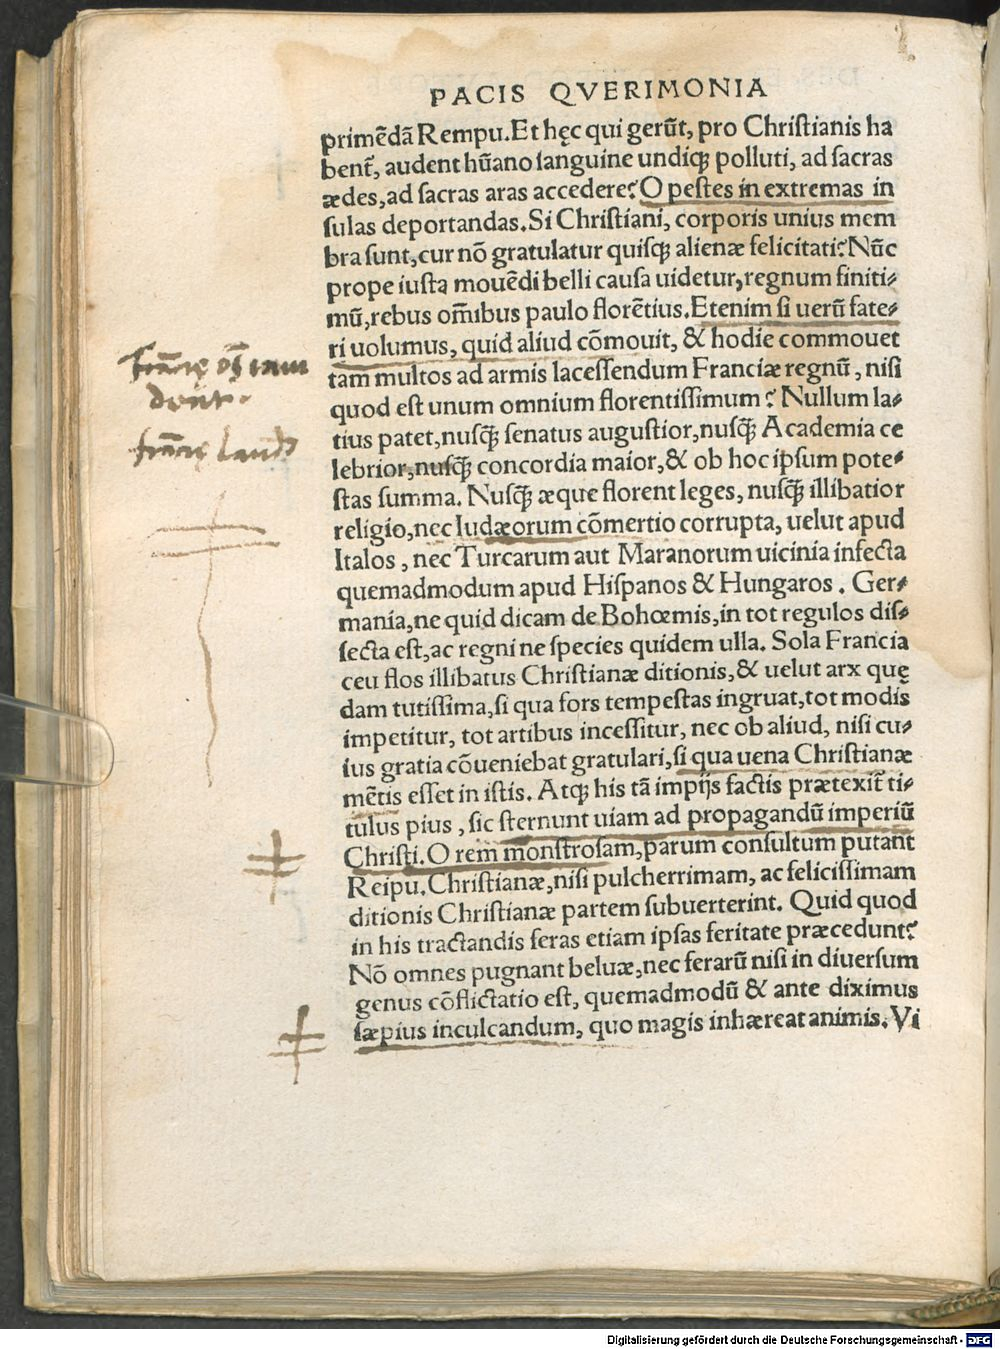 PACIS QVERIMONIA
primēdā Rempu. Et hęc qui gerūt, pro Christianis ha
bent̄, audent hūano sanguine undiqꝫ polluti, ad sacras
ædes, ad sacras aras accedere? O pestes in extremas in
sulas deportandas. Si Christiani, corporis unius mem
bra sunt, cur nō gratulatur quisqꝫ alienæ felicitati? Nūc
prope iusta mouēdi belli causa uidetur, regnum finiti-
mū, rebus om̄ibus paulo florētius. Etenim si uerū fate-
ri uolumus, quid aliud cōmouit, & hodie commouet
tam multos ad armis lacessendum Franciæ regnū, nisi
quod est unum omnium florentissimum? Nullum la-
tius patet, nusq̄ senatus augustior, nusq̄ Academia ce
lebrior, nusq̄ concordia maior, & ob hoc ipsum pote-
stas summa. Nusq̄ æque florent leges, nusq̄ illibatior
religio, nec Iudæorum cōmertio corrupta, uelut apud
Italos, nec Turcarum aut Maranorum uicinia infecta
quemadmodum apud Hispanos & Hungaros. Ger-
mania, ne quid dicam de Bohœmis, in tot regulos dis-
secta est, ac regni ne species quidem ulla. Sola Francia
ceu flos illibatus Christianæ ditionis, & uelut arx quę
dam tutissima, si qua fors tempestas ingruat, tot modis
impetitur, tot artibus incessitur, nec ob aliud, nisi cu-
ius gratia cōueniebat gratulari, si qua uena Christianæ
mētis esset in istis. Atqꝫ his tā impijs factis prætexit̄ ti-
tulus pius, sic sternunt uiam ad propagandū imperiū
Christi. O rem monstrosam, parum consultum putant
Reipu. Christianæ, nisi pulcherrimam, ac felicissimam
ditionis Christianæ partem subuerterint. Quid quod
in his tractandis feras etiam ipsas feritate præcedunt?
Nō omnes pugnant beluæ, nec ferarū nisi in diuersum
genus cōflictatio est, quemadmodū & ante diximus
sæpius inculcandum, quo magis inhæreat animis. Vi
Digitalisierung gefördert durch die Deutsche Forschungsgemeinschaft - DFG